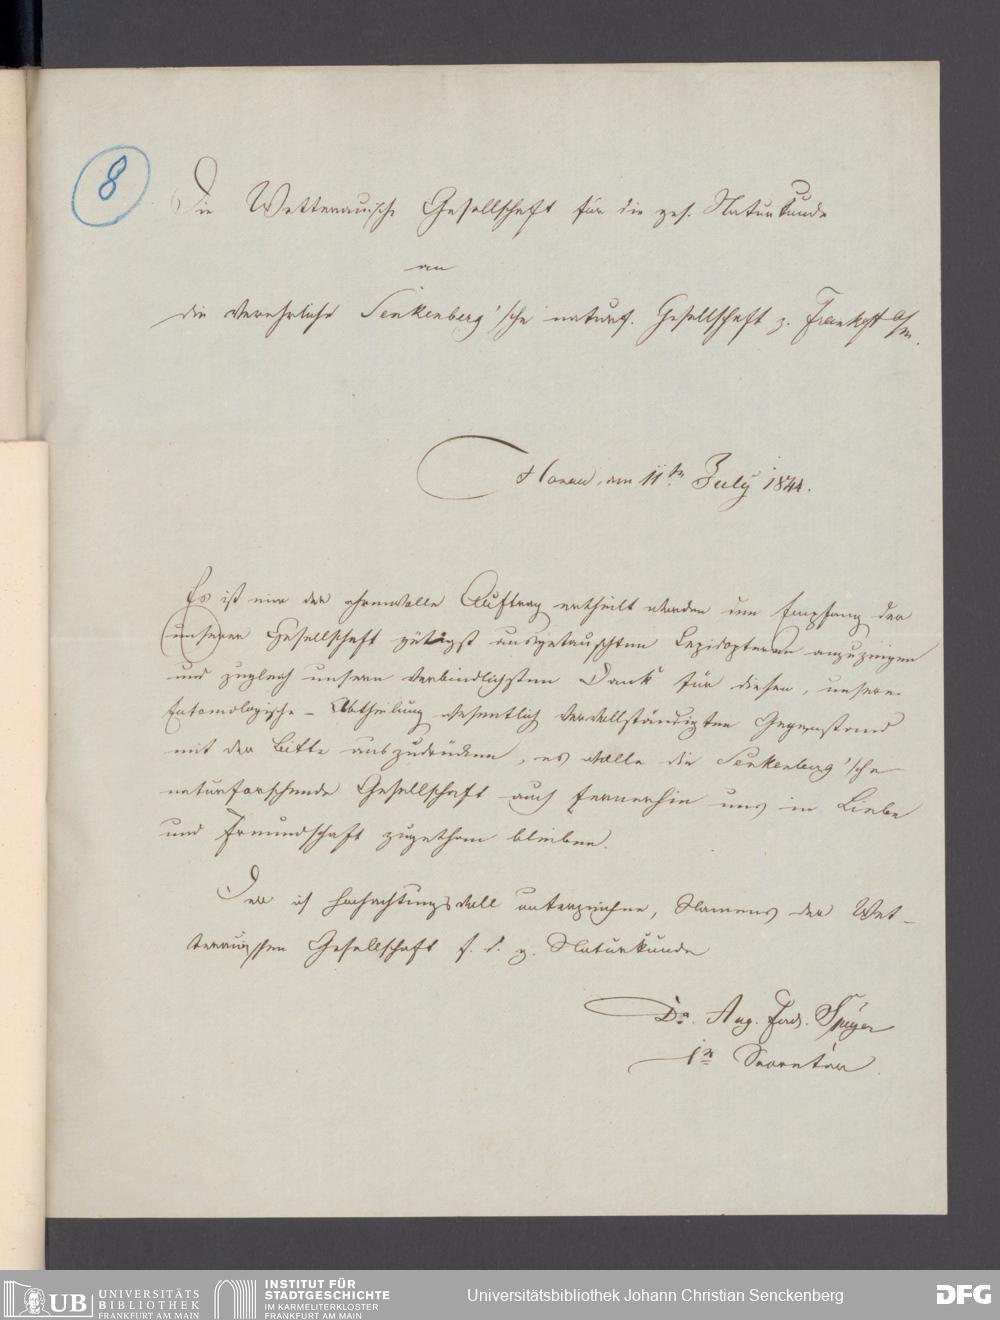 8
Die Wetterauische Gesellschaft für die ges. Naturkunde
an
die verehrliche Senkenberg'sche naturf. Gesellschaft z. Frankft a/m.
Hanau, am 11ten July 1844.
Es ist mir der ehrenvolle Auftrag ertheilt worden den Empfang der
unserer Gesellschaft gütigst ausgetauschten Lepidopteren anzuzeigen
und zugleich unsern verbindlichsten Dank für diesen, unsere
Entomologische-Abtheilung wesentlich vervollständigten Gegenstand
mit der Bitte auszudrücken, es wolle die Senkenberg'sche
naturforschende Gesellschaft auch fernerhin uns in Liebe
und Freundschaft zugethan bleiben.
Der ich hochachtungsvoll unterzeichne, Namens der Wet-
terauischen Gesellschaft f. d. g. Naturkunde
Dr. Aug. Ferd. Speyer
1r Secretär.
UB UNIVERSITÄTS
BIBLIOTHEK
FRANKFURT AM MAIN
INSTITUT FÜR
STADTGESCHICHTE
IM KARMELITERKLOSTER
FRANKFURT AM MAIN
Universitätsbibliothek Johann Christian Senckenberg
DFG